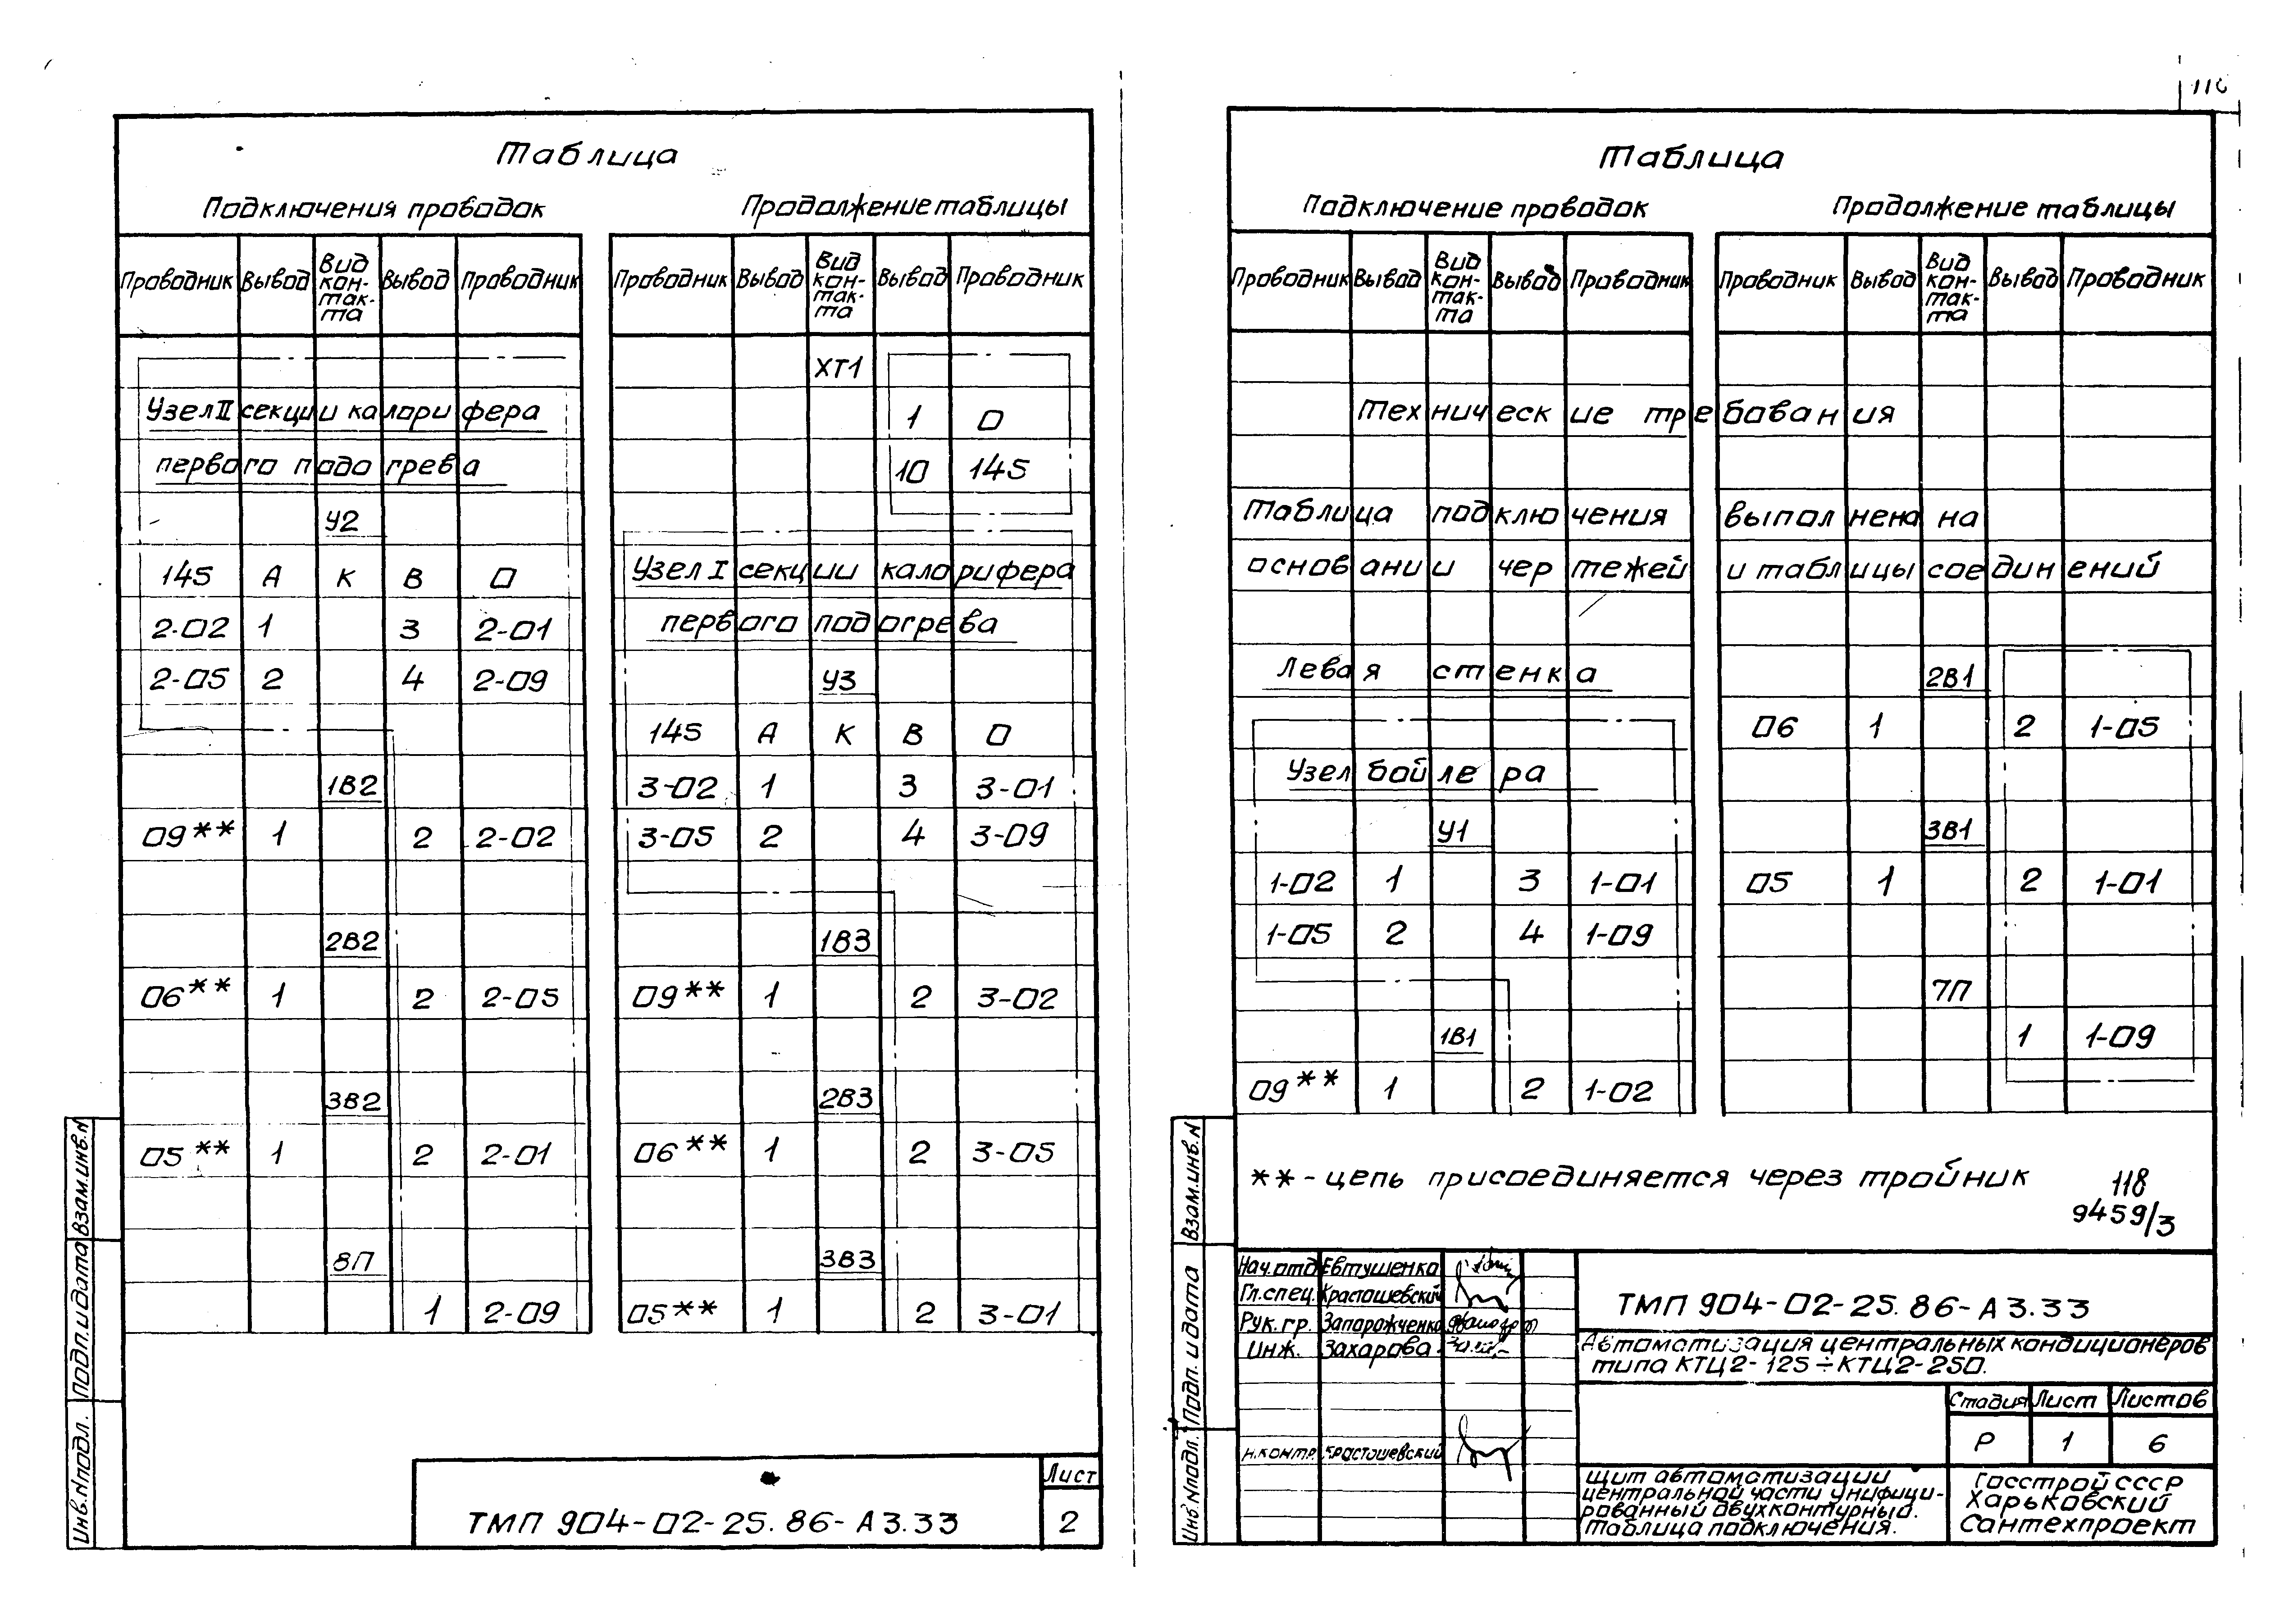 Таблица
Подключения проводок
Продолжение таблицы
Проводник Вывод Вид кон-так-та Вывод Проводник
Узел II секции калорифера
первого подогрева
У2
145 А К В 0
2-02 1 3 2-01
2-05 2 4 2-09
1В2
09** 1 2 2-02
2В2
06** 1 2 2-05
3В2
05** 1 2 2-01
8П
1 2-09
Проводник Вывод Вид кон-так-та Вывод Проводник
ХТ1
1 0
10 145
Узел I секции калорифера
первого подогрева
У3
145 А К В 0
3-02 1 3 3-01
3-05 2 4 3-09
1В3
09** 1 2 3-02
2В3
06** 1 2 3-05
3В3
05** 1 2 3-01
Взам.инв.N
Подп.и дата
Инв.Nподл.
ТМП 904-02-25.86-А3.33
Лист
2
Таблица
Подключение проводок
Продолжение таблицы
Проводник Вывод Вид кон-так-та Вывод Проводник
Проводник Вывод Вид кон-так-та Вывод Проводник
Технические требования
Таблица подключения выполнена на
основании чертежей и таблицы соединений
Левая стенка
Узел бойлера
У1
1-02 1 3 1-01
1-05 2 4 1-09
1В1
09** 1 2 1-02
2В1
06 1 2 1-05
3В1
05 1 2 1-01
7П
1 1-09
** - цепь присоединяется через тройник
118
9459/3
Взам.инв.N
Подп. и дата
Инв.Nподл.
Нач.отд Евтушенко
Гл.спец. Красташевский
Рук.гр. Запорожченко
Инж. Захарова
Н.контр. Красташевский
ТМП 904-02-25.86-А3.33
Автоматизация центральных кондиционеров
типа КТЦ2-125÷КТЦ2-250.
Стадия Лист Листов
Р 1 6
Щит автоматизации
центральной части унифици-
рованный двухконтурный.
Таблица подключения.
Госстрой СССР
Харьковский
Сантехпроект